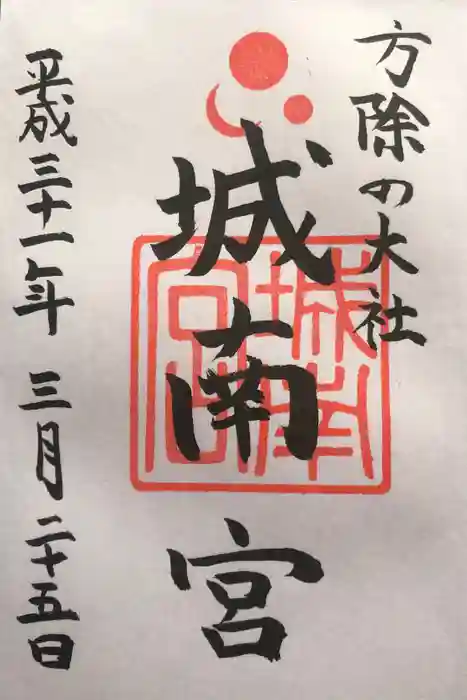 方除の大社
城南宮
平成三十一年 三月 二十五日
城南宮